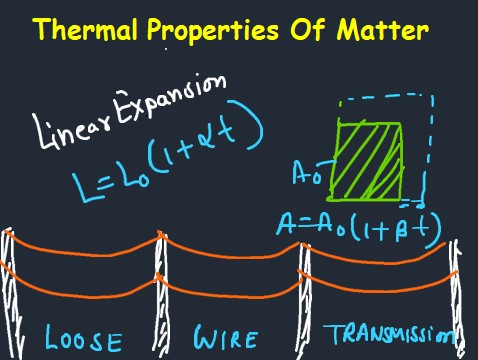 Thermal Properties Of Matter
Linear Expansion
L=L₀(1+αt)
A₀
A=A₀(1+βt)
LOOSE WIRE TRANSMISSION